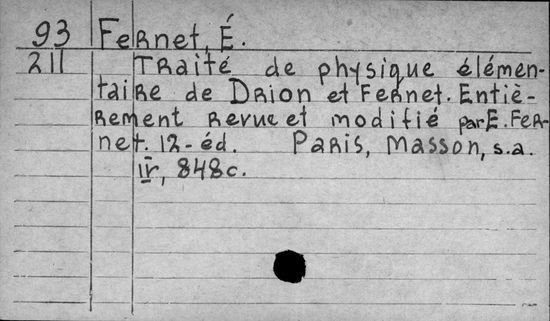 93 Fernet, É.
211 Traité de physique élémen-
taire de Drion et Fernet. Entiè-
rement revue et modifié par E. Fer-
net. 12-éd. Paris, Masson, s.a.
IV, 848 c.